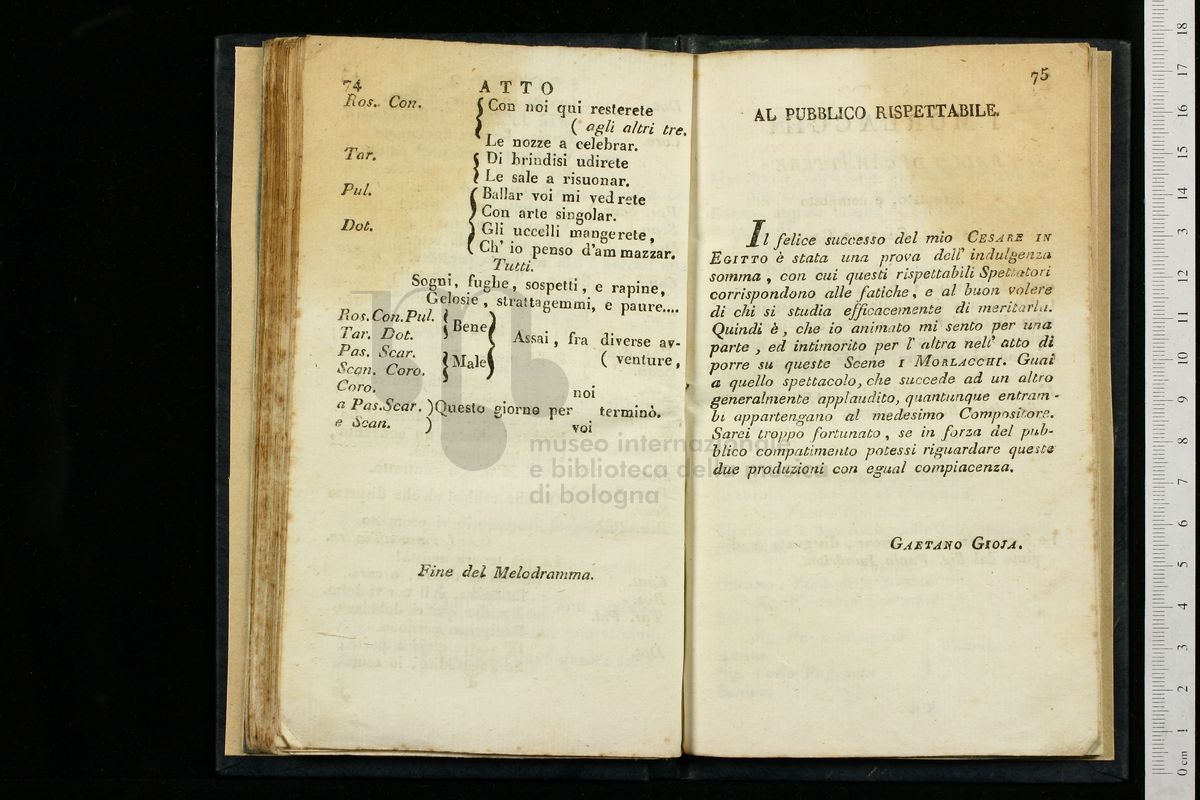 74
ATTO
Ros. Con. Con noi qui resterete
( agli altri tre.
Le nozze a celebrar.
Tar. Di brindisi udirete
Le sale a risuonar.
Pul. Ballar voi mi vedrete
Con arte singolar.
Dot. Gli uccelli mangerete,
Ch' io penso d'ammazzar.
Tutti.
Sogni, fughe, sospetti, e rapine,
Gelosie, strattagemmi, e paure....
Ros.Con.Pul.
Tar. Dot. Bene
Assai, fra diverse av-
Pas. Scar. ( venture,
Scan. Coro. Male
Coro. noi
a Pas.Scar. )Questo giorno per terminò.
e Scan. ) voi
Fine del Melodramma.
75
AL PUBBLICO RISPETTABILE.
Il felice successo del mio CESARE IN
EGITTO è stata una prova dell' indulgenza
somma, con cui questi rispettabili Spettatori
corrispondono alle fatiche, e al buon volere
di chi si studia efficacemente di meritarla.
Quindi è, che io animato mi sento per una
parte, ed intimorito per l' altra nell' atto di
porre su queste Scene I MORLACCHI. Guai
a quello spettacolo, che succede ad un altro
generalmente applaudito, quantunque entram-
bi appartengano al medesimo Compositore.
Sarei troppo fortunato, se in forza del pub-
blico compatimento potessi riguardare queste
due produzioni con egual compiacenza.
GAETANO GIOJA.
museo internazionale
e biblioteca della musica
di bologna
0 cm 1 2 3 4 5 6 7 8 9 10 11 12 13 14 15 16 17 18